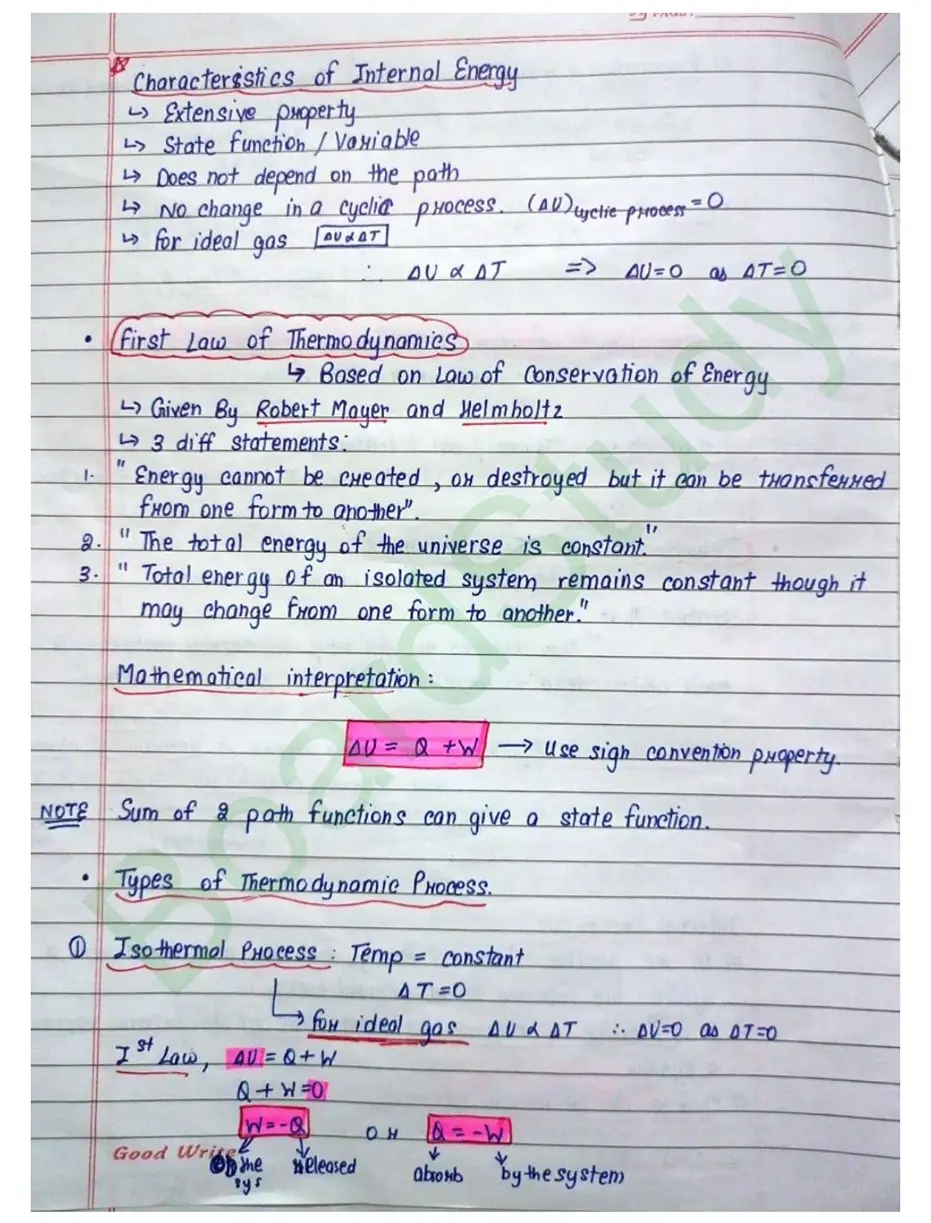 Characteristics of Internal Energy
↳ Extensive property
↳ State function / Variable
↳ Does not depend on the path
↳ No change in a cyclic process. (ΔU)cyclic process = 0
↳ for ideal gas ΔU α ΔT
∴ ΔU α ΔT => ΔU=0 as ΔT=0
• First Law of Thermodynamics
↳ Based on Law of Conservation of Energy
↳ Given By Robert Mayer and Helmholtz
↳ 3 diff statements:
1. "Energy cannot be created, or destroyed but it can be transferred
from one form to another".
2. "The total energy of the universe is constant."
3. "Total energy of an isolated system remains constant though it
may change from one form to another."
Mathematical interpretation:
ΔU = Q + W → Use sign convention property.
NOTE Sum of 2 path functions can give a state function.
• Types of Thermodynamic Process.
① Isothermal Process : Temp = constant
ΔT=0
↳ for ideal gas ΔU α ΔT ∴ ΔU=0 as ΔT=0
Ist Law, ΔU = Q + W
Q + W = 0
W = -Q or Q = -W
Good Write
the released absorb by the system
sys
BoardStudy